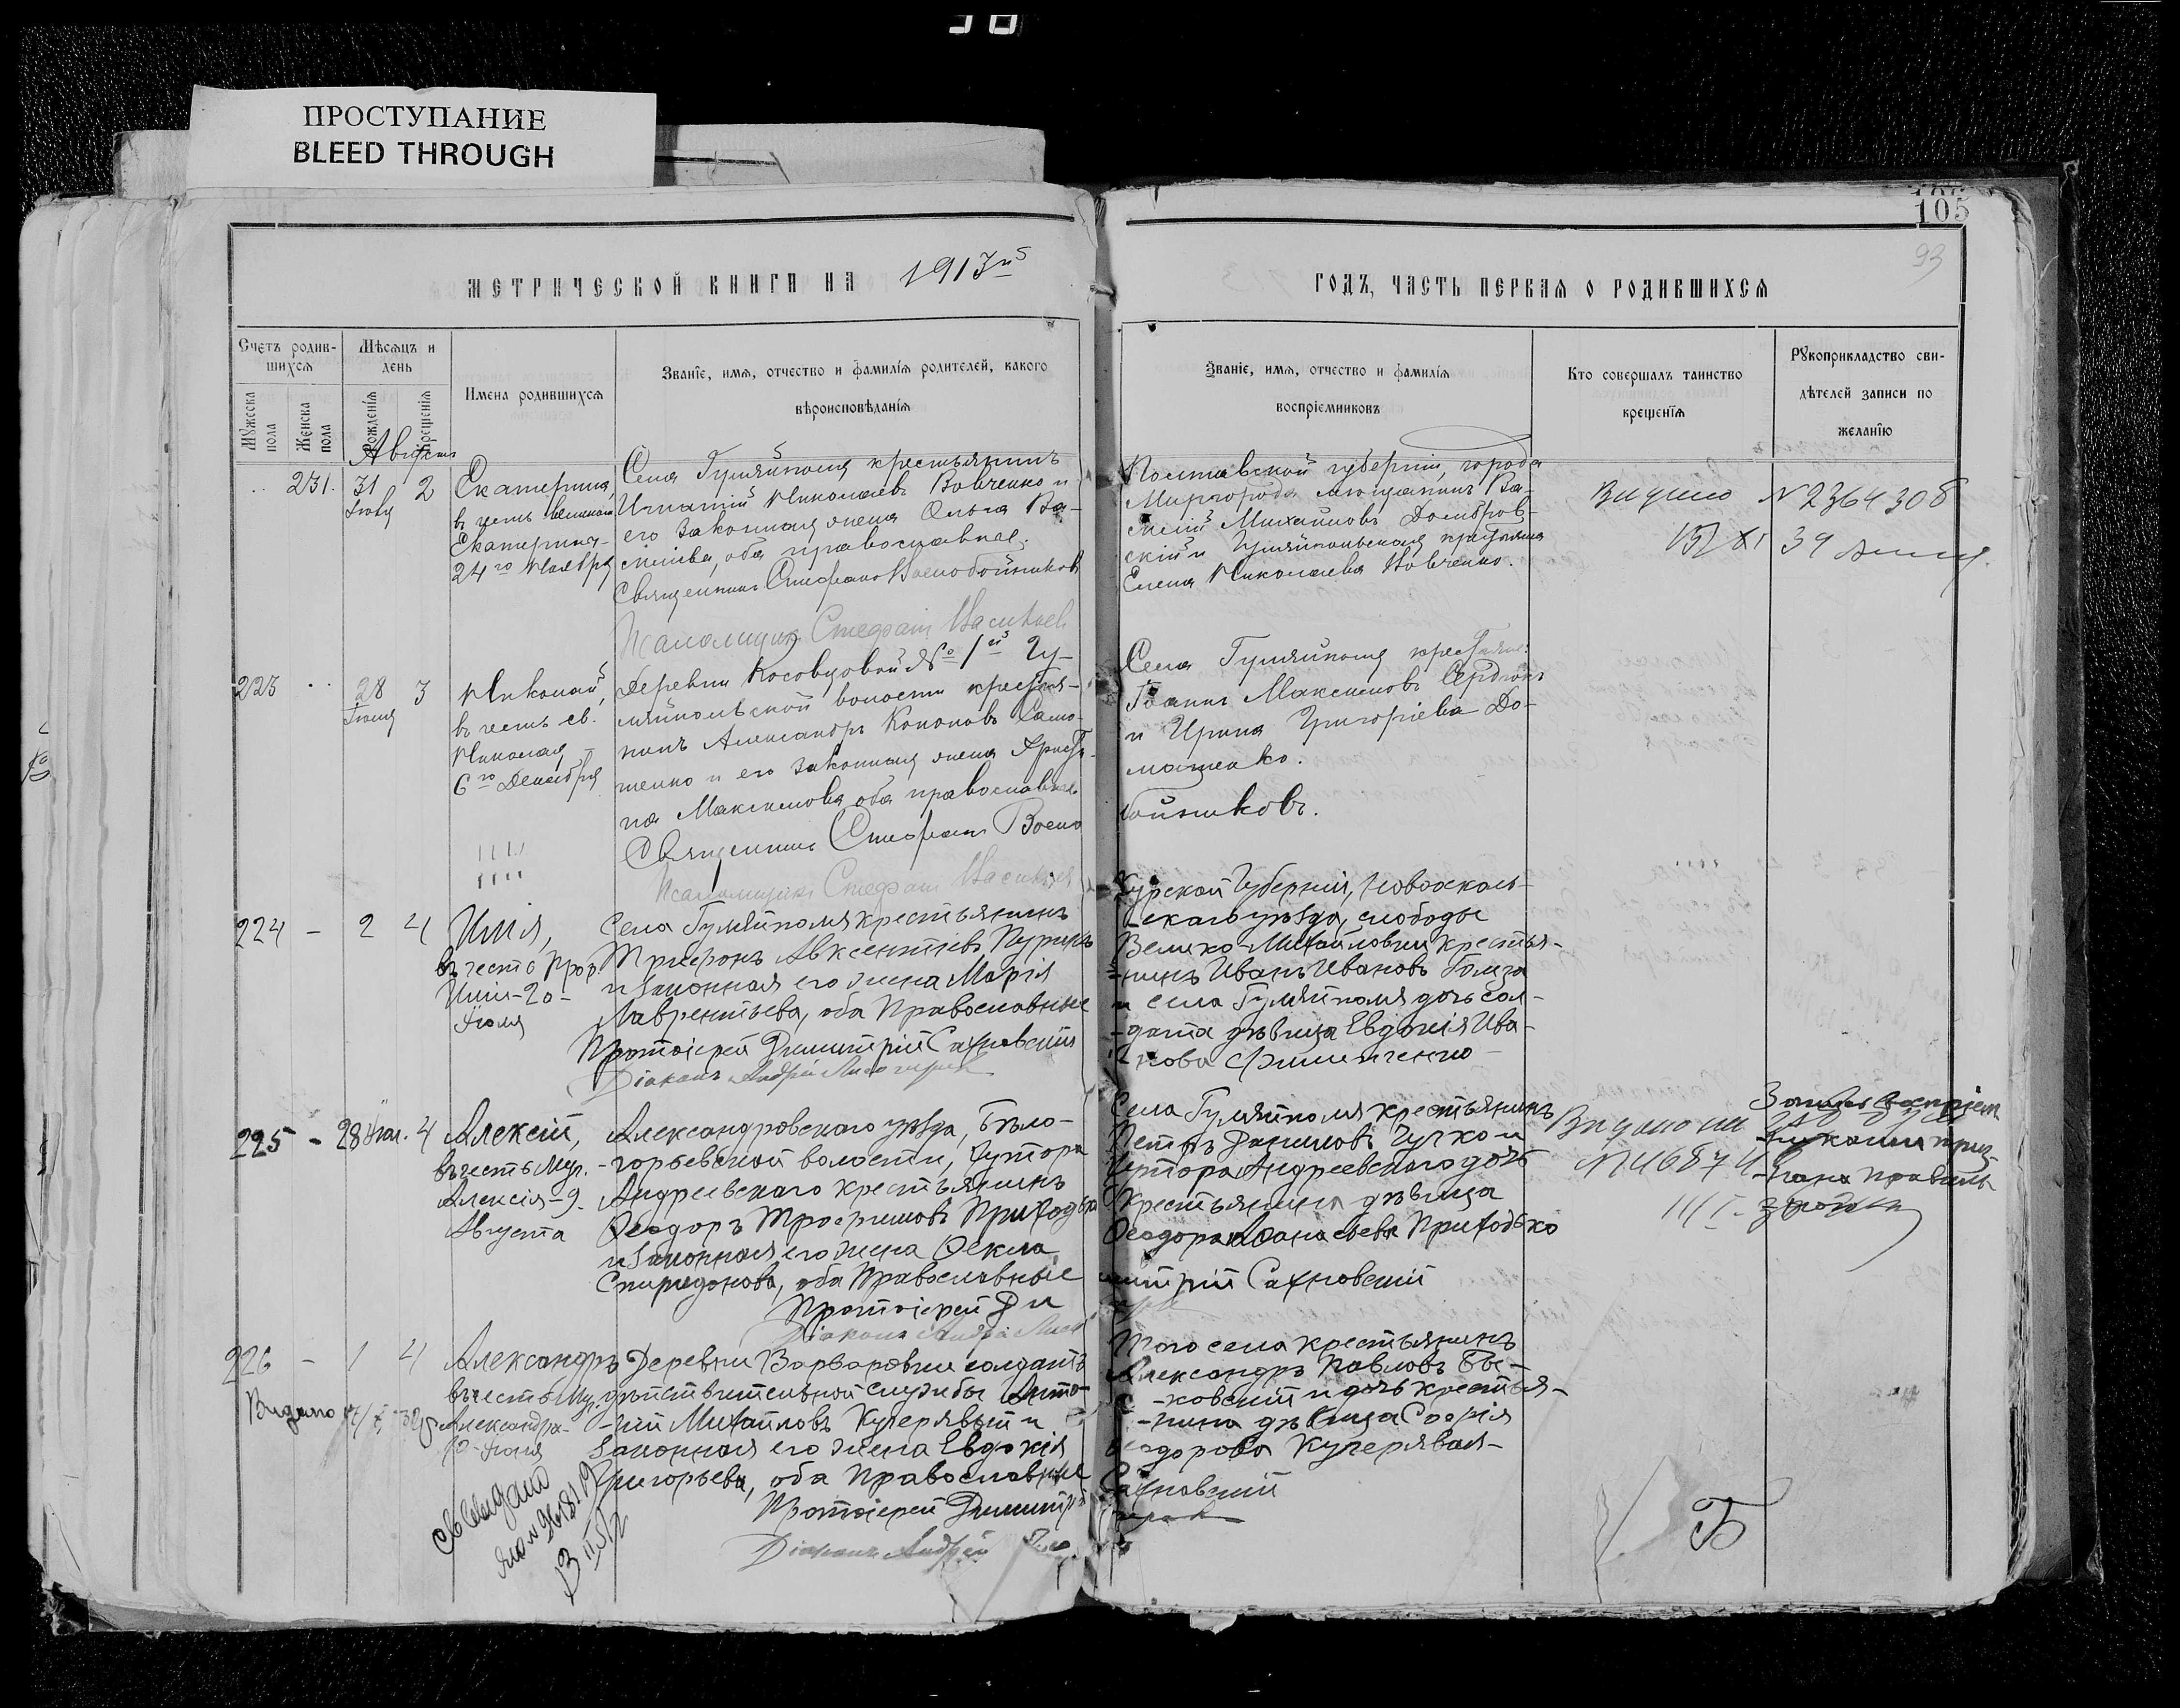 ПРОСТУПАНИЕ
BLEED THROUGH
105
93
МЕТРИЧЕСКОЙ КНИГИ НА 1913й
ГОДЪ, ЧАСТЬ ПЕРВАЯ О РОДИВШИХСЯ
Счетъ родив-
шихся
Мужеска пола
Женска пола
Мѣсяцъ и
день
Рожденія
Крещенія
Имена родившихся
Званіе, имя, отчество и фамилія родителей, какого
вѣроисповѣданія
Званіе, имя, отчество и фамилія
воспріемниковъ
Кто совершалъ таинство
крещенія
Рукоприкладство сви-
дѣтелей записи по
желанію
Августъ
231. 31 Іюля 2
Екатерина,
въ честь великом
Екатерины
24го Ноября
Села Гуляйполя крестьянинъ
Игнатій Николаевъ Вовченко и
его законная жена Ольга Ва-
силіева, оба православные.
Священникъ Стефанъ Воскобойниковъ
Псаломщик Стефанъ
Полтавской губерніи, города
Миргорода мѣщанинъ Ва-
силій Михайловъ Домбров-
скій и Гуляйпольская крестьянка
Елена Николаева Вовченко.
Видано N 2364308
15/XI 39
223 28 Іюля 3
Николай,
въ честь св.
Николая
6го Декабря
Деревни Косовцовой № 1й Гу-
ляйпольской волости крестья-
нинъ Александръ Кононовъ
и его законная жена Христи-
на Максимова оба православные
Священникъ Стефанъ Воско
Псаломщикъ Стефанъ
Села Гуляйполя крестьяне:
Іоаннъ Максимовъ Сердюкъ
и Ирина Григоріева До-
машенко.
бойниковъ.
224 - 2 4
Илія,
въ честь Прор.
Иліи-20-
Іюля
Села Гуляйполя крестьянинъ
Трифонъ Авксентіевъ
и законная его жена Марія
Лаврентьева, оба Православные
Протоіерей Димитрій Сахновскій
Діаконъ Андрей
Курской Губерніи, Новооскол-
скаго уѣзда, слободы
Велико-Михайловки крестья-
нинъ Иванъ Ивановъ
и села Гуляйполя дочь сол-
дата дѣвица Евдокія Ива-
нова
225 - 28 Іюл. 4
Алексій,
въ честь Муч.
Алексія-9-
Августа
Александровскаго уѣзда, Бѣло-
-горьевской волости, Хутора
Андреевскаго крестьянинъ
Ѳеодоръ Трофимовъ Приходько
и законная его жена Ѳекла
Спиридонова, оба Православные
Протоіерей Ди
Діаконъ Андрей
Села Гуляйполя крестьянинъ
Петръ Даниловъ Гучко и
Хутора Андреевскаго дочь
Крестьянина дѣвица
Ѳеодора Аѳанасьева Приходько
митрій Сахновскій
226 - 1 4
Александръ
въ честь Муч.
Александра-
10-Іюня
Деревни Варваровки солдатъ
дѣйствительной службы Анто-
-ній Михайловъ Кучерявый и
законная его жена Евдокія
Григорьева, оба Православные
Протоіерей Димитрій
Діаконъ Андрей
Того села крестьянинъ
Александръ Павловъ Бы-
-ковскій и дочь крестья-
-нина дѣвица Софія
Ѳеодорова Кучерявая-
Сахновскій
Видано
Б